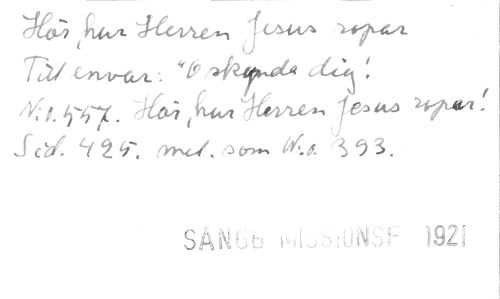 Hör, hur Herren Jesus ropar
Till envar: "O skynda dig!
N:o. 557. Hör, hur Herren Jesus ropar!
Sid. 425. mel. som N:o. 393.
SÅNGB MISSIONSF 1921